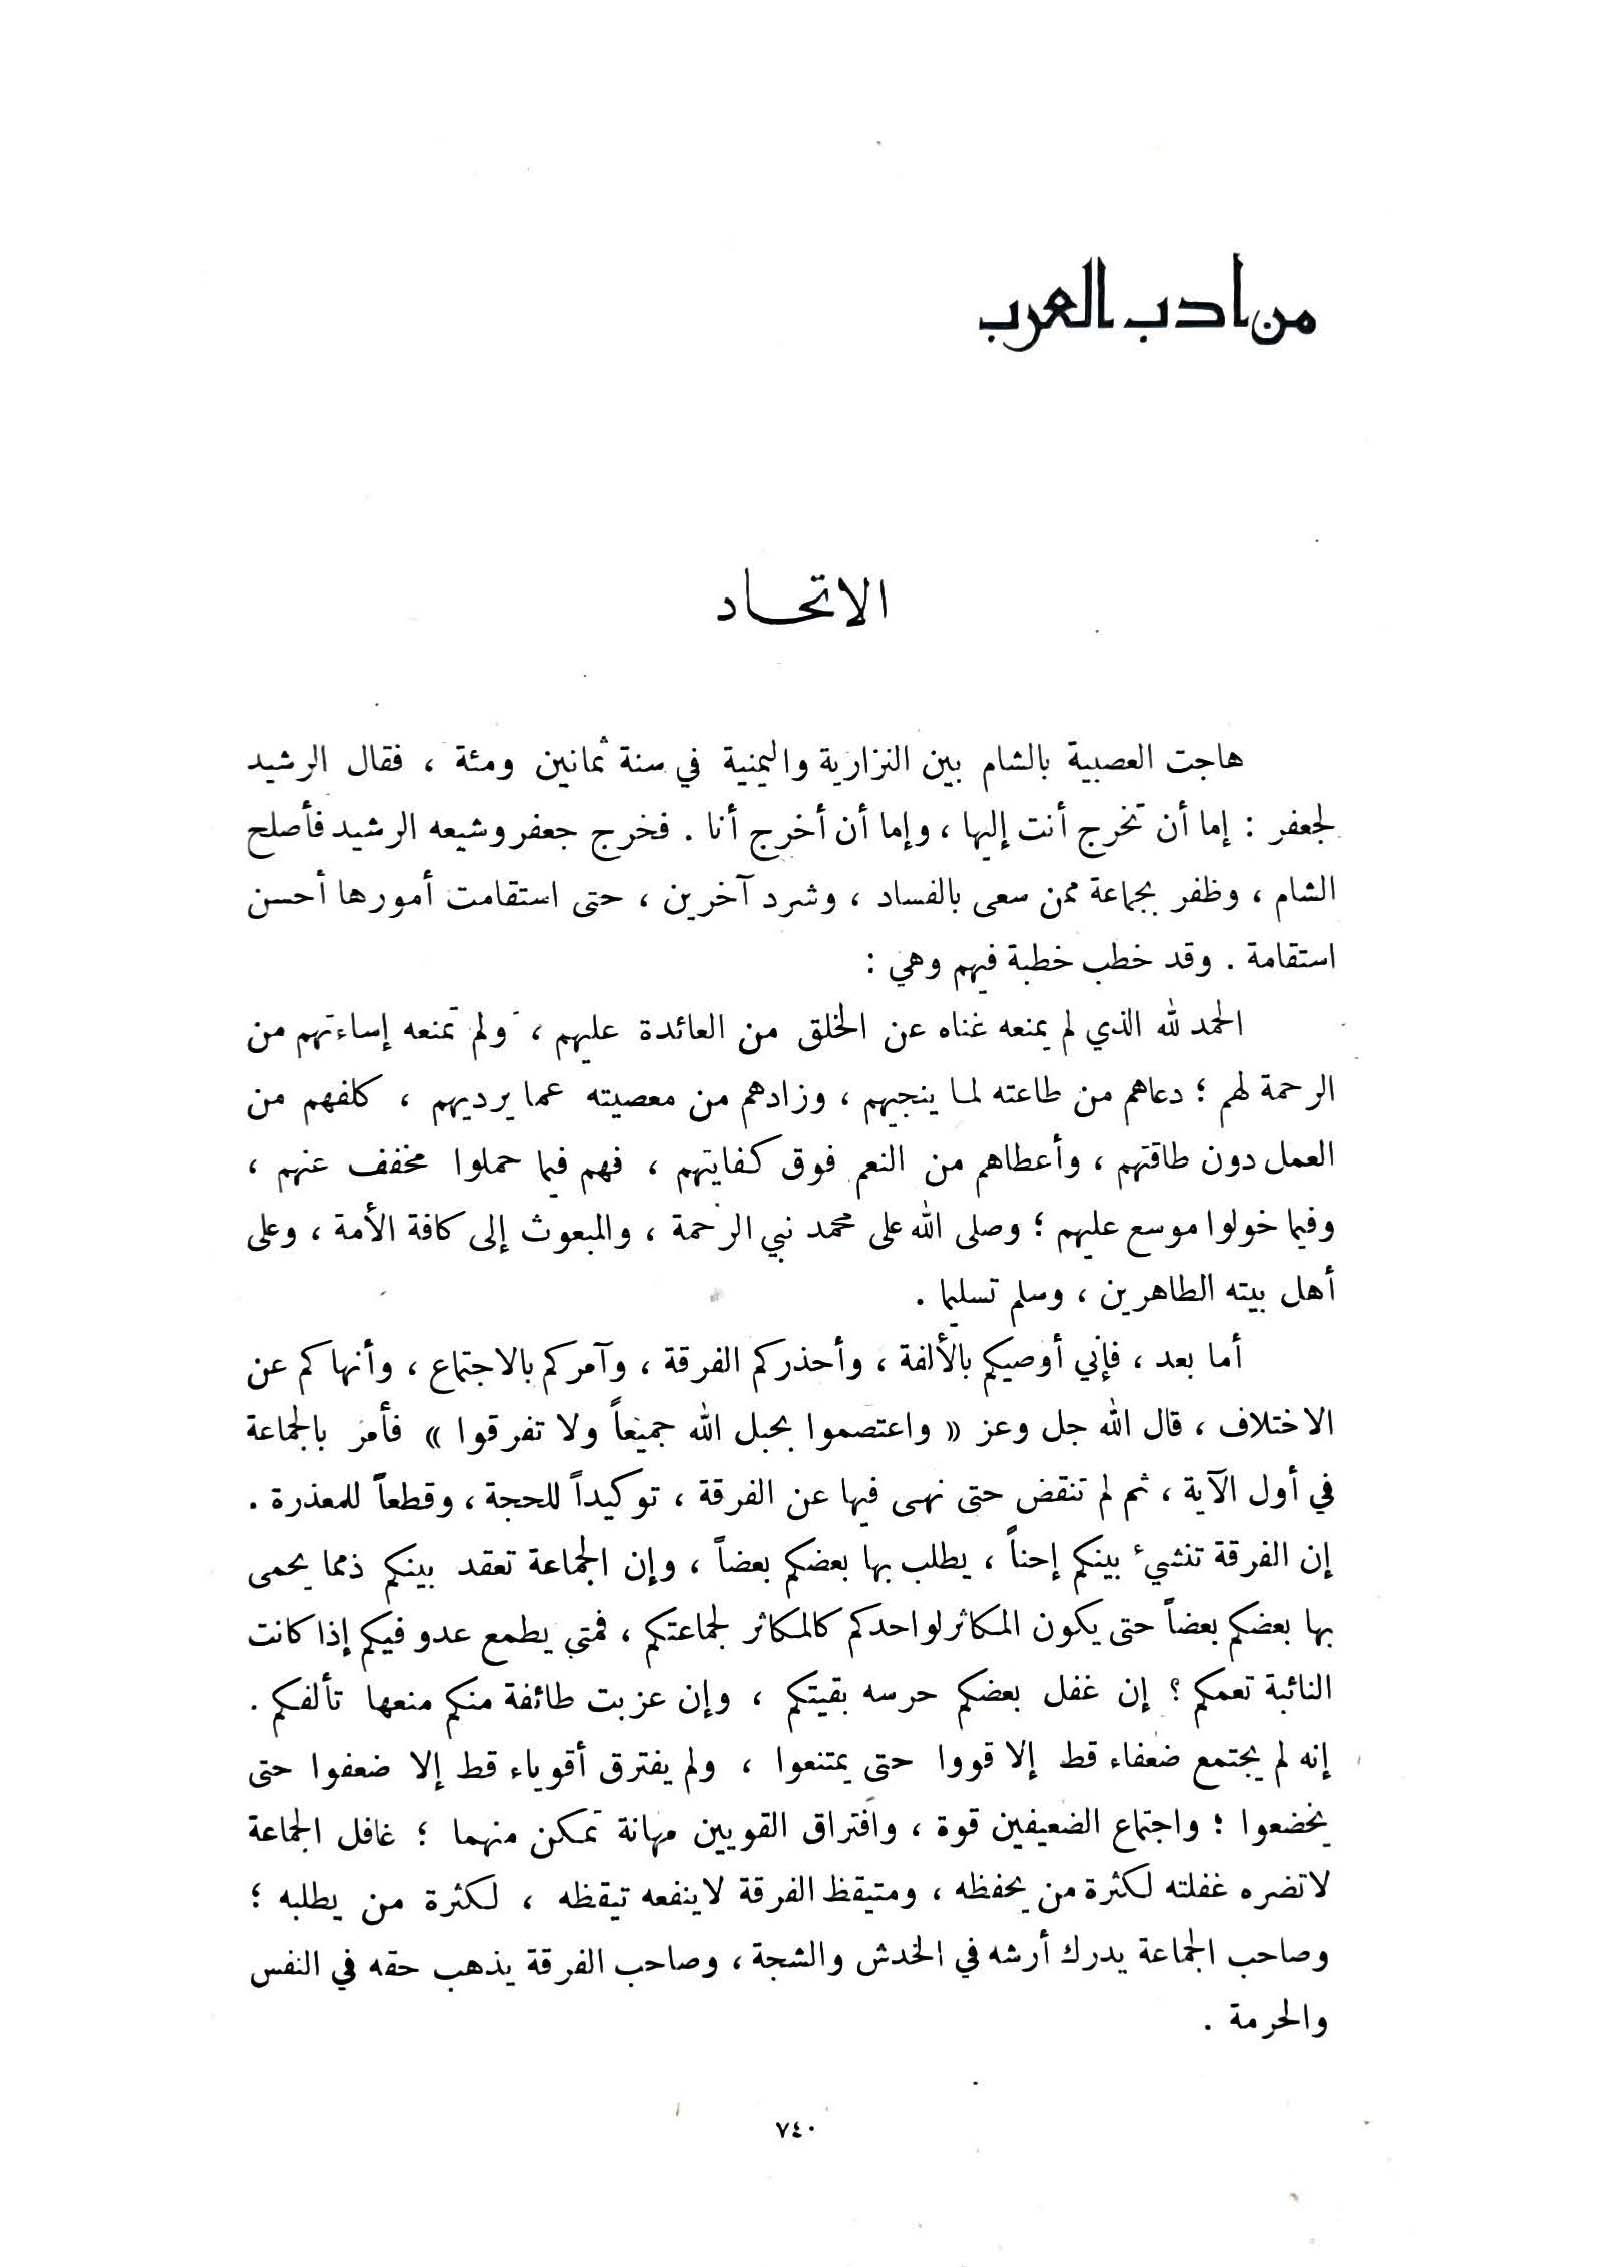 من ادب العرب
الاتحاد
هاجت العصبية بالشام بين النزارية واليمنية في سنة ثمانين ومئة ، فقال الرشيد
لجعفر : إما أن تخرج أنت إليها ، وإما أن أخرج أنا . فخرج جعفر وشيعه الرشيد فأصلح
الشام ، وظفر بجماعة ممن سعى بالفساد ، وشرد آخرين ، حتى استقامت أمورها أحسن
استقامة . وقد خطب خطبة فيهم وهي :
الحمد لله الذي لم يمنعه غناه عن الخلق من العائدة عليهم ، ولم تمنعه إساءتهم من
الرحمة لهم ؛ دعاهم من طاعته لما ينجيهم ، وزادهم من معصيته عما يرديهم ، كلفهم من
العمل دون طاقتهم ، وأعطاهم من النعم فوق كفايتهم ، فهم فيما حملوا مخفف عنهم ،
وفيما خولوا موسع عليهم ؛ وصلى الله على محمد نبي الرحمة ، والمبعوث إلى كافة الأمة ، وعلى
أهل بيته الطاهرين ، وسلم تسليما .
أما بعد ، فإني أوصيكم بالألفة ، وأحذركم الفرقة ، وآمركم بالاجتماع ، وأنهاكم عن
الاختلاف ، قال الله جل وعز « واعتصموا بحبل الله جميعاً ولا تفرقوا » فأمر بالجماعة
في أول الآية ، ثم لم تنقض حتى نهى فيها عن الفرقة ، توكيداً للحجة ، وقطعاً للمعذرة .
إن الفرقة تنشيء بينكم إحناً ، يطلب بها بعضكم بعضاً ، وإن الجماعة تعقد بينكم ذمما يحمى
بها بعضكم بعضاً حتى يكون المكاثر لواحدكم كالمكاثر لجماعتكم ، فمتى يطمع عدو فيكم إذا كانت
النائبة تعمكم ؟ إن غفل بعضكم حرسه بقيتكم ، وإن عزبت طائفة منكم منعها تألفكم .
إنه لم يجتمع ضعفاء قط إلا قووا حتى يمتنعوا ، ولم يفترق أقوياء قط إلا ضعفوا حتى
يخضعوا ؛ واجتماع الضعيفين قوة ، وافتراق القويين مهانة تمكن منهما ؛ غافل الجماعة
لاتضره غفلته لكثرة من يحفظه ، ومتيقظ الفرقة لاينفعه تيقظه ، لكثرة من يطلبه ؛
وصاحب الجماعة يدرك أرشه في الخدش والشجة ، وصاحب الفرقة يذهب حقه في النفس
والحرمة .
٧٤٠